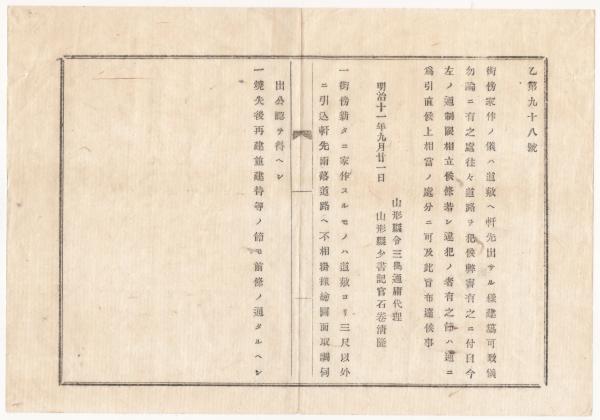 乙第九十八號
街傍家作ノ儀ハ道敷ヘ軒先出サル樣建築可致儀
勿論ニ有之處往々道路ヲ犯候弊害有之ニ付自今
左ノ通制限相立候條若シ違犯ノ者有之節ハ速ニ
爲引直候上相當ノ處分ニ可及此旨布達候事
明治十一年九月廿一日
山形縣令三島通庸代理
山形縣少書記官石卷清隆
一街傍新タニ家作スルモノハ道敷ヨリ三尺以外
ニ引込軒先雨落道路ヘ不相掛樣繪圖面取調伺
出公認ヲ得ヘシ
一燒失後再建並建替等ノ節モ前條ノ通タルヘシ